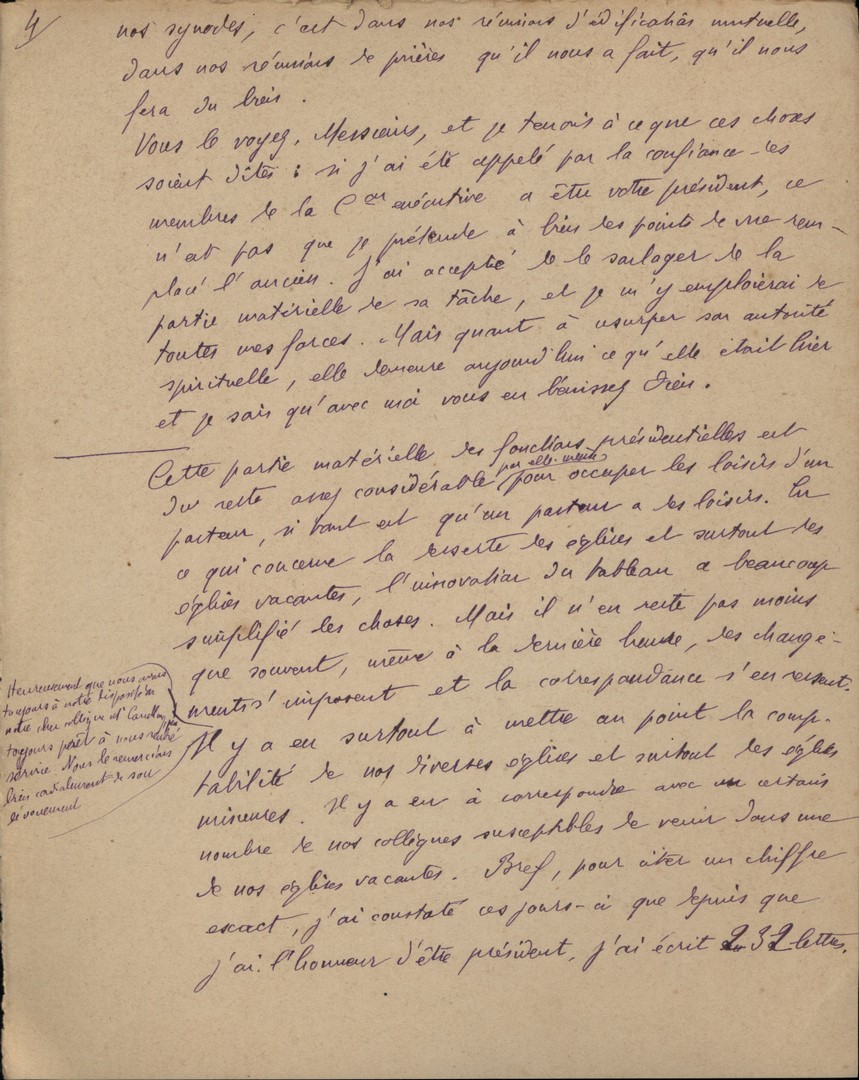 4
nos synodes, c'est dans nos réunions d'édification mutuelle,
dans nos réunions de prières qu'il nous a fait, qu'il nous
fera du bien.
Vous le voyez, Messieurs, et je tenais à ce que ces choses
soient dîtes : si j'ai été appelé par la confiance des
membres de la Con exécutive a être votre président, ce
n'est pas que je prétende à bien des points de vue rem-
placé l'ancien. J'ai accepté de le soulager de la
partie matérielle de sa tâche, et je m'y emploierai de
toutes mes forces. Mais quant à usurper son autorité
spirituelle, elle demeure aujourd'hui ce qu'elle était hier
et je sais qu'avec moi vous en bénissez Dieu.
Cette partie matérielle des fonctions présidentielles est
par elle-même
du reste assez considérable pour occuper les loisirs d'un
pasteur, si tant est qu'un pasteur a des loisirs. En
ce qui concerne la desserte des églises et surtout des
églises vacantes, l'innovation du tableau a beaucoup
simplifié les choses. Mais il n'en reste pas moins
que souvent, même à la dernière heure, des change-
ments s'imposent et la correspondance s'en ressent.
Heureusement que nous avons
toujours à notre disposition
notre cher collègue Mr
toujours prêt à nous rendre
service. Nous le remercions
bien cordialement de son
dévouement
Il y a eu surtout à mettre au point la comp-
tabilité de nos diverses églises et surtout des églises
mineures. Il y a eu à correspondre avec un certain
nombre de nos collègues susceptibles de venir dans une
de nos églises vacantes. Bref, pour citer un chiffre
escact, j'ai constaté ces jours-ci que depuis que
j'ai l'honneur d'être président, j'ai écrit 232 lettres.